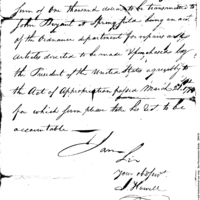 sum of One thousand dollars to be transmitted to
John Bryant at Springfield being on acct
of the Ordnance department for repairs and
Articles directed to be made & purchased by
the President of the United States agreeably to
the Act of Appropriation passed March
for which sum please take his Rct to be
accountable
I am
Sir
your obdt servt
S Howell